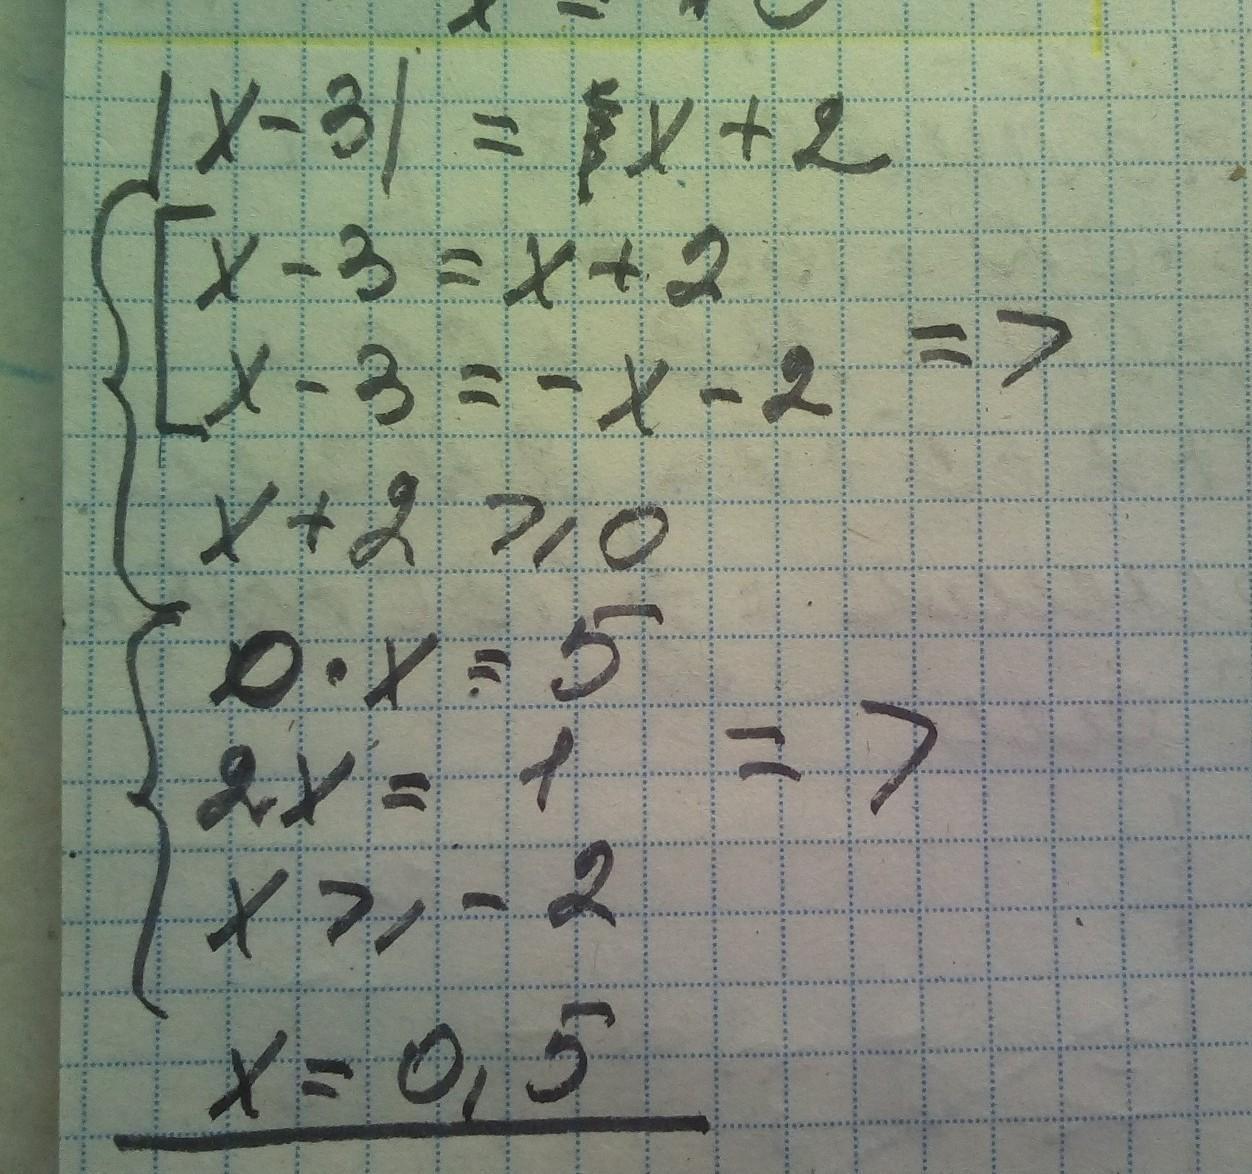 |x-3| = x+2
x-3=x+2
x-3=-x-2 =>
x+2 ⩾ 0
0·x=5
2x= 1 =>
x ⩾ -2
x=0,5